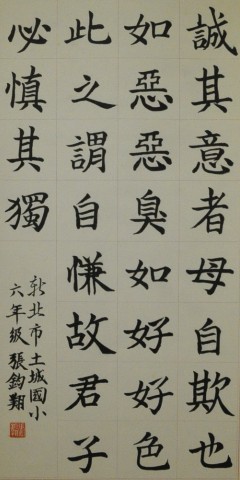 誠其意者母自欺也
如惡惡臭如好好色
此之謂自慊故君子
必慎其獨
新北市土城國小
六年級張鈞翔